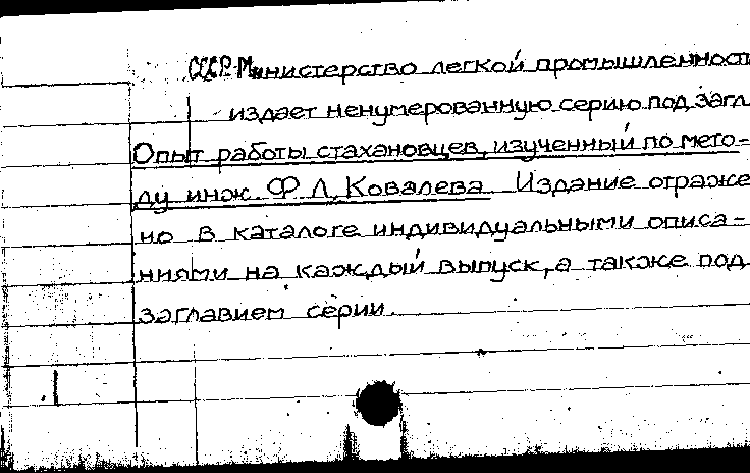 СССР. Министерство легкой промышленности
издает ненумерованную серию под загл.
Опыт работы стахановцев, изученный по мето-
ду инж. Ф. Л. Ковалева. Издание отраже-
но в каталоге индивидуальными описа-
ниями на каждый выпуск, а также под
заглавием серии.